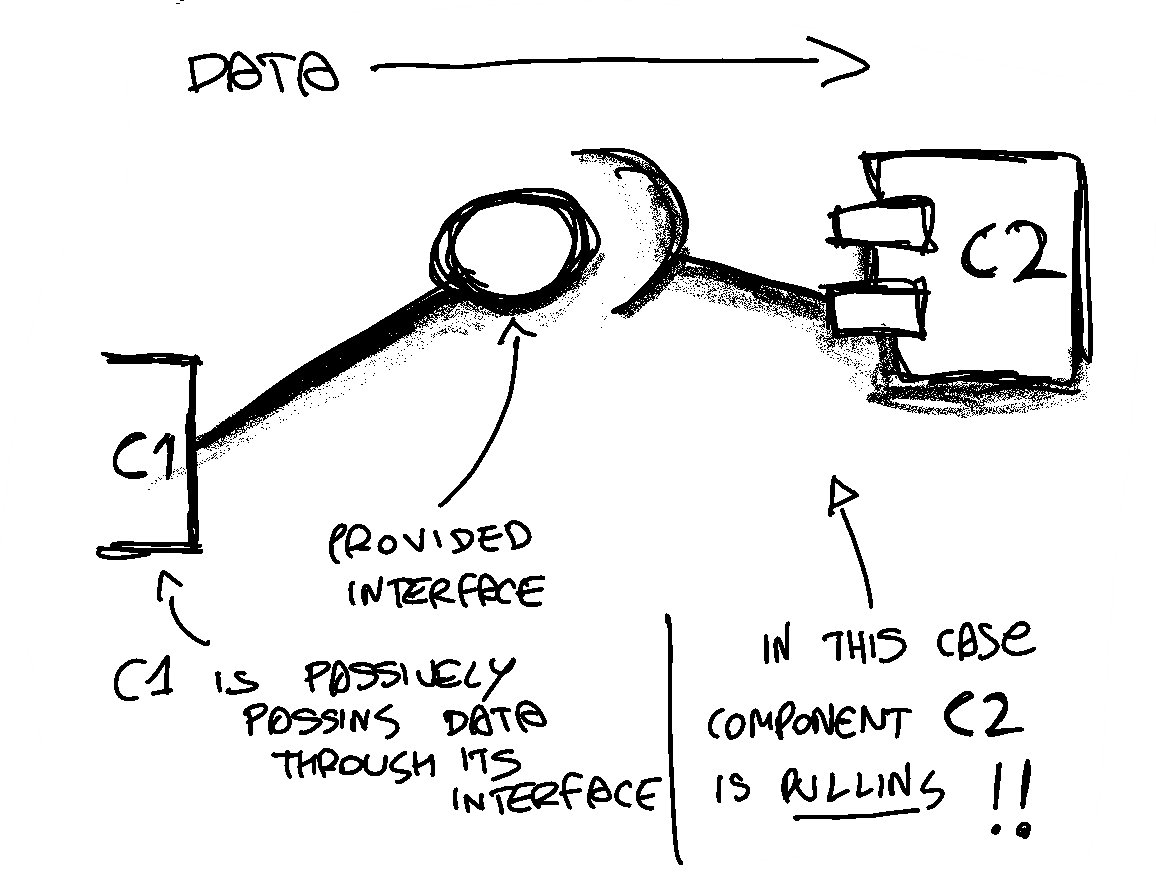 DATA
C2
C1
PROVIDED
INTERFACE
C1 IS PASSIVELY
PASSING DATA
THROUGH ITS
INTERFACE
IN THIS CASE
COMPONENT C2
IS PULLING !!